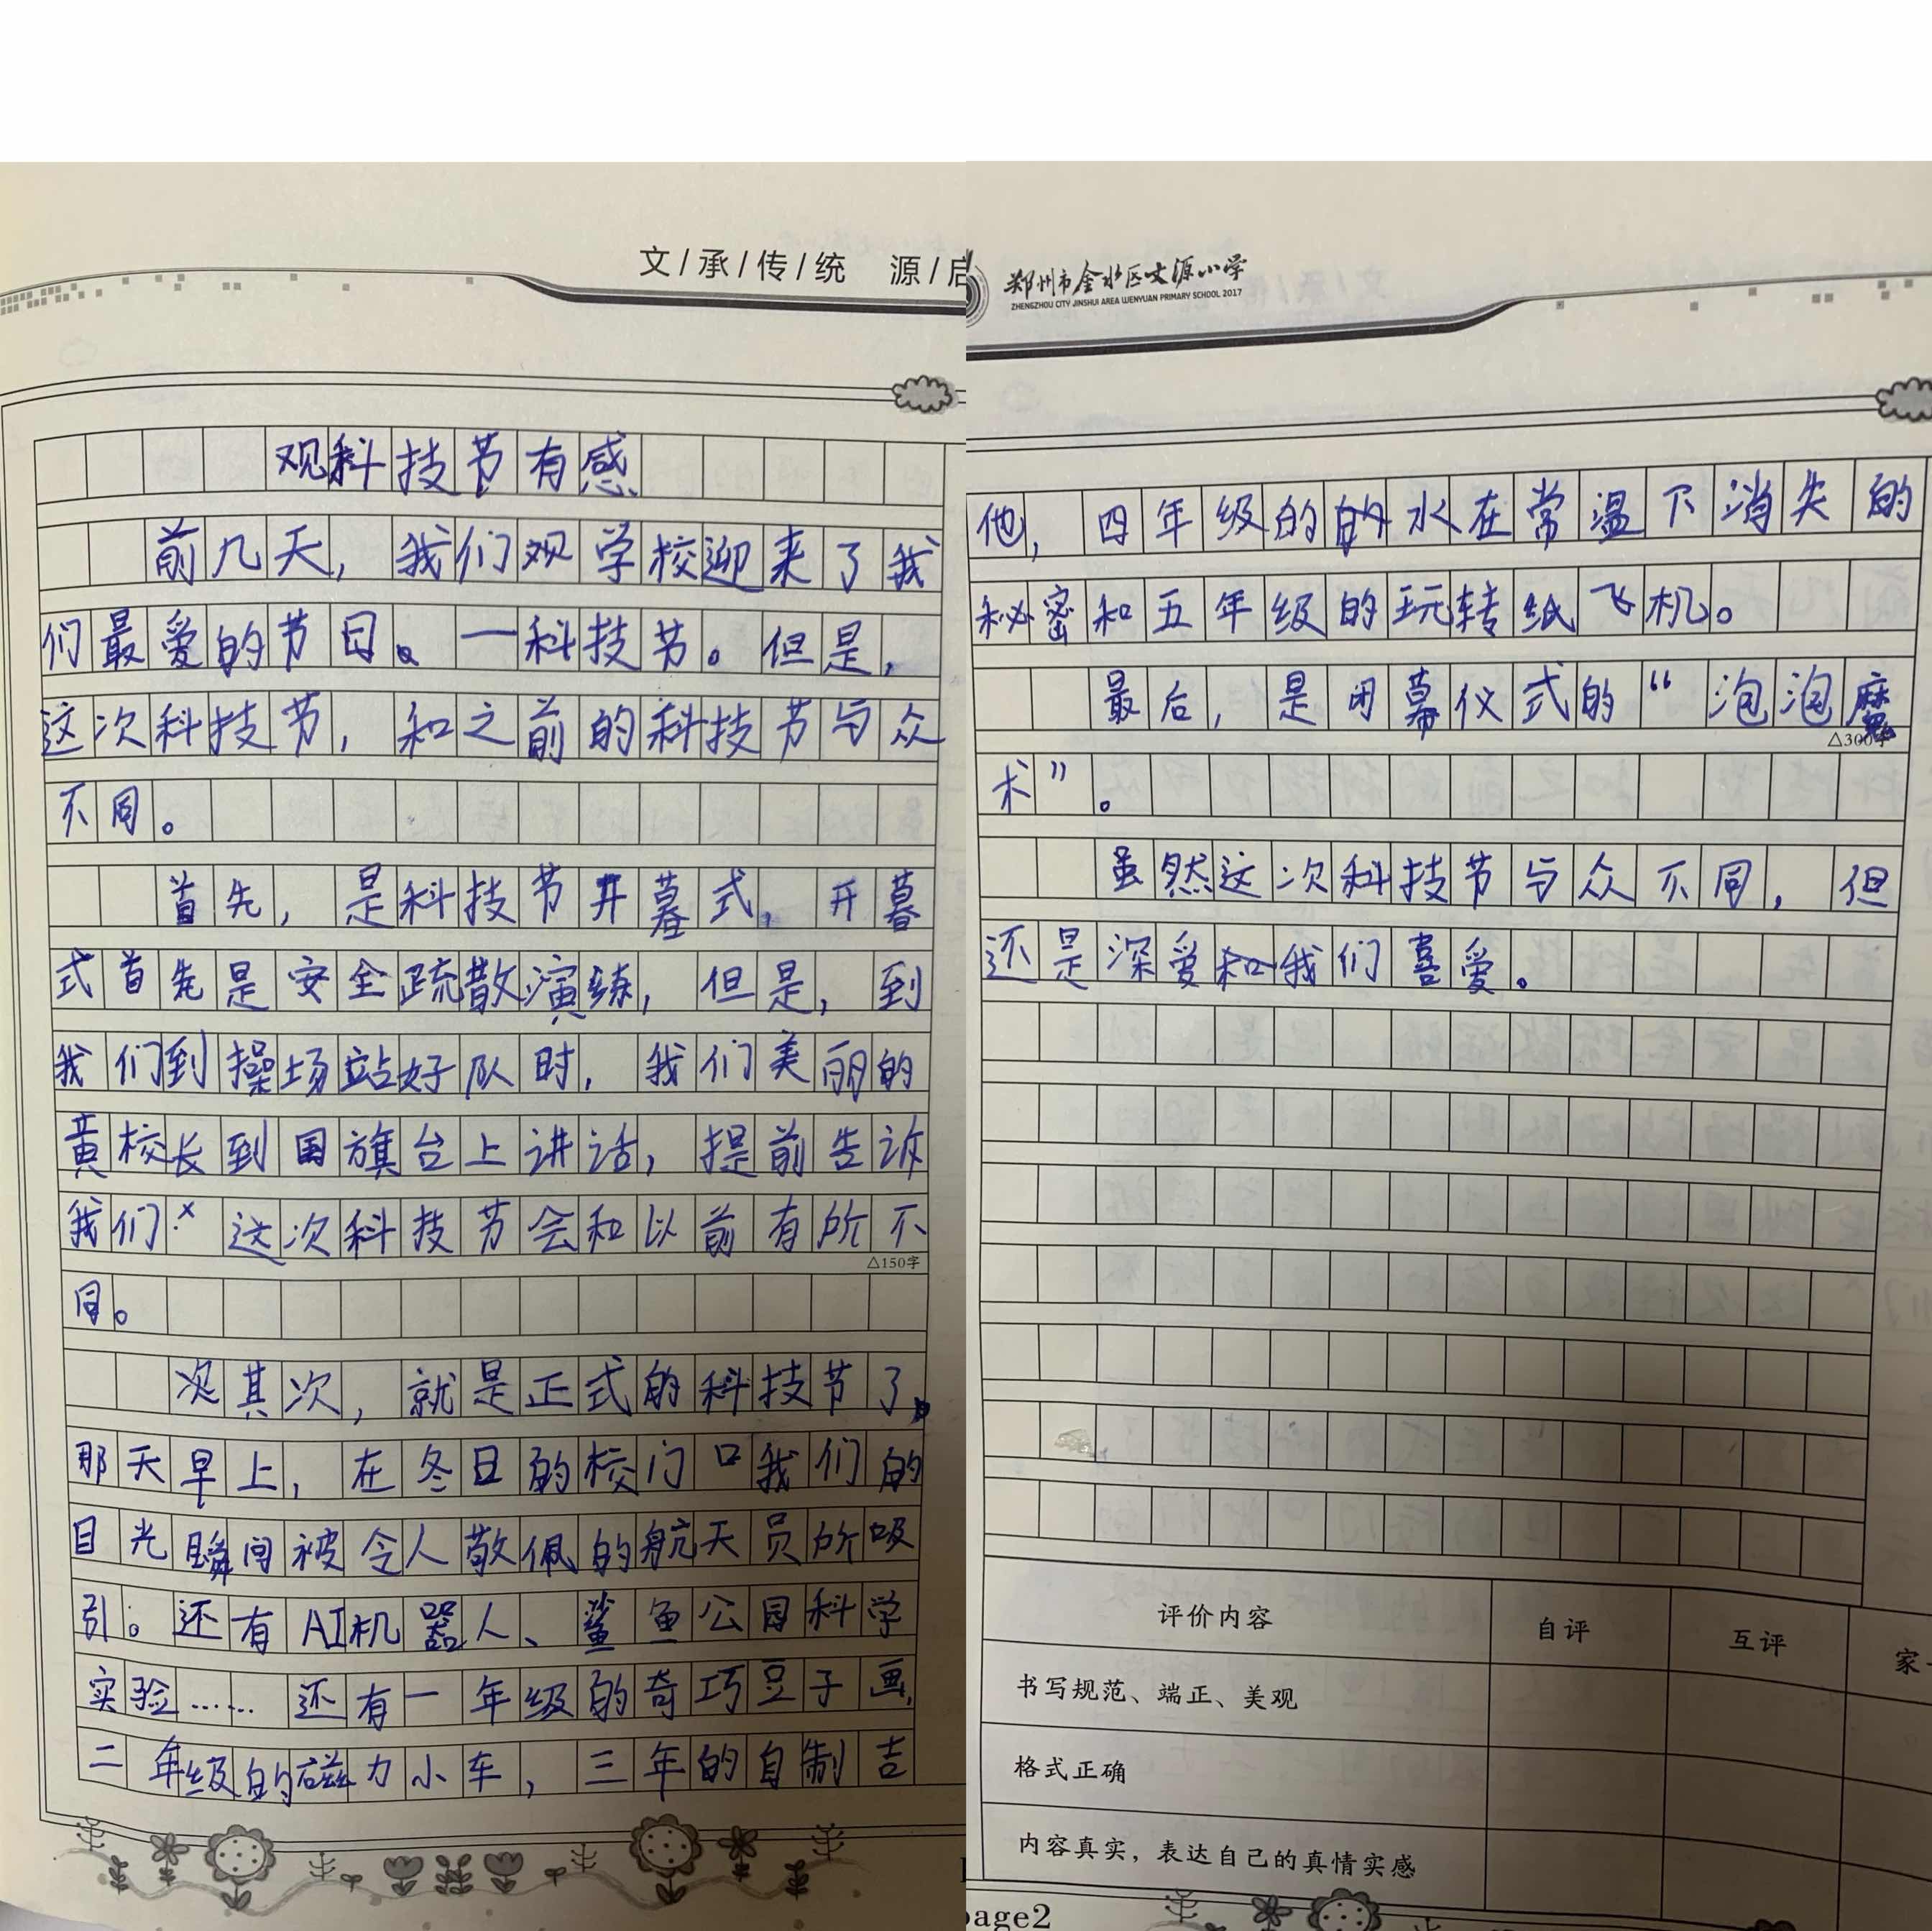 文/承/传/统 源/启
观科技节有感
前几天，我们观学校迎来了我
们最爱的节日。一科技节。但是，
这次科技节，和之前的科技节与众
不同。
首先，是科技节开幕式，开暮
式首先是安全疏散演练，但是，到
我们到操场站好队时，我们美丽的
黄校长到国旗台上讲话，提前告诉
我们：这次科技节会和以前有所不
△150字
同。
次其次，就是正式的科技节了，
那天早上，在冬日的校门口我们的
目光瞬间被令人敬佩的航天员所吸
引。还有AI机器人、鲨鱼公园科学
实验……还有一年级的奇巧豆子画，
二年级的磁力小车，三年的自制吉
郑州市金水区文源小学
ZHENGZHOU CITY JINSHUI AREA WENYUAN PRIMARY SCHOOL 2017
他，四年级的的水在常温下消失的
秘密和五年级的玩转纸飞机。
最后，是闭幕仪式的“泡泡魔
△300字
术”。
虽然这次科技节与众不同，但
还是深爱和我们喜爱。
评价内容 自评 互评 家
书写规范、端正、美观
格式正确
内容真实，表达自己的真情实感
page2